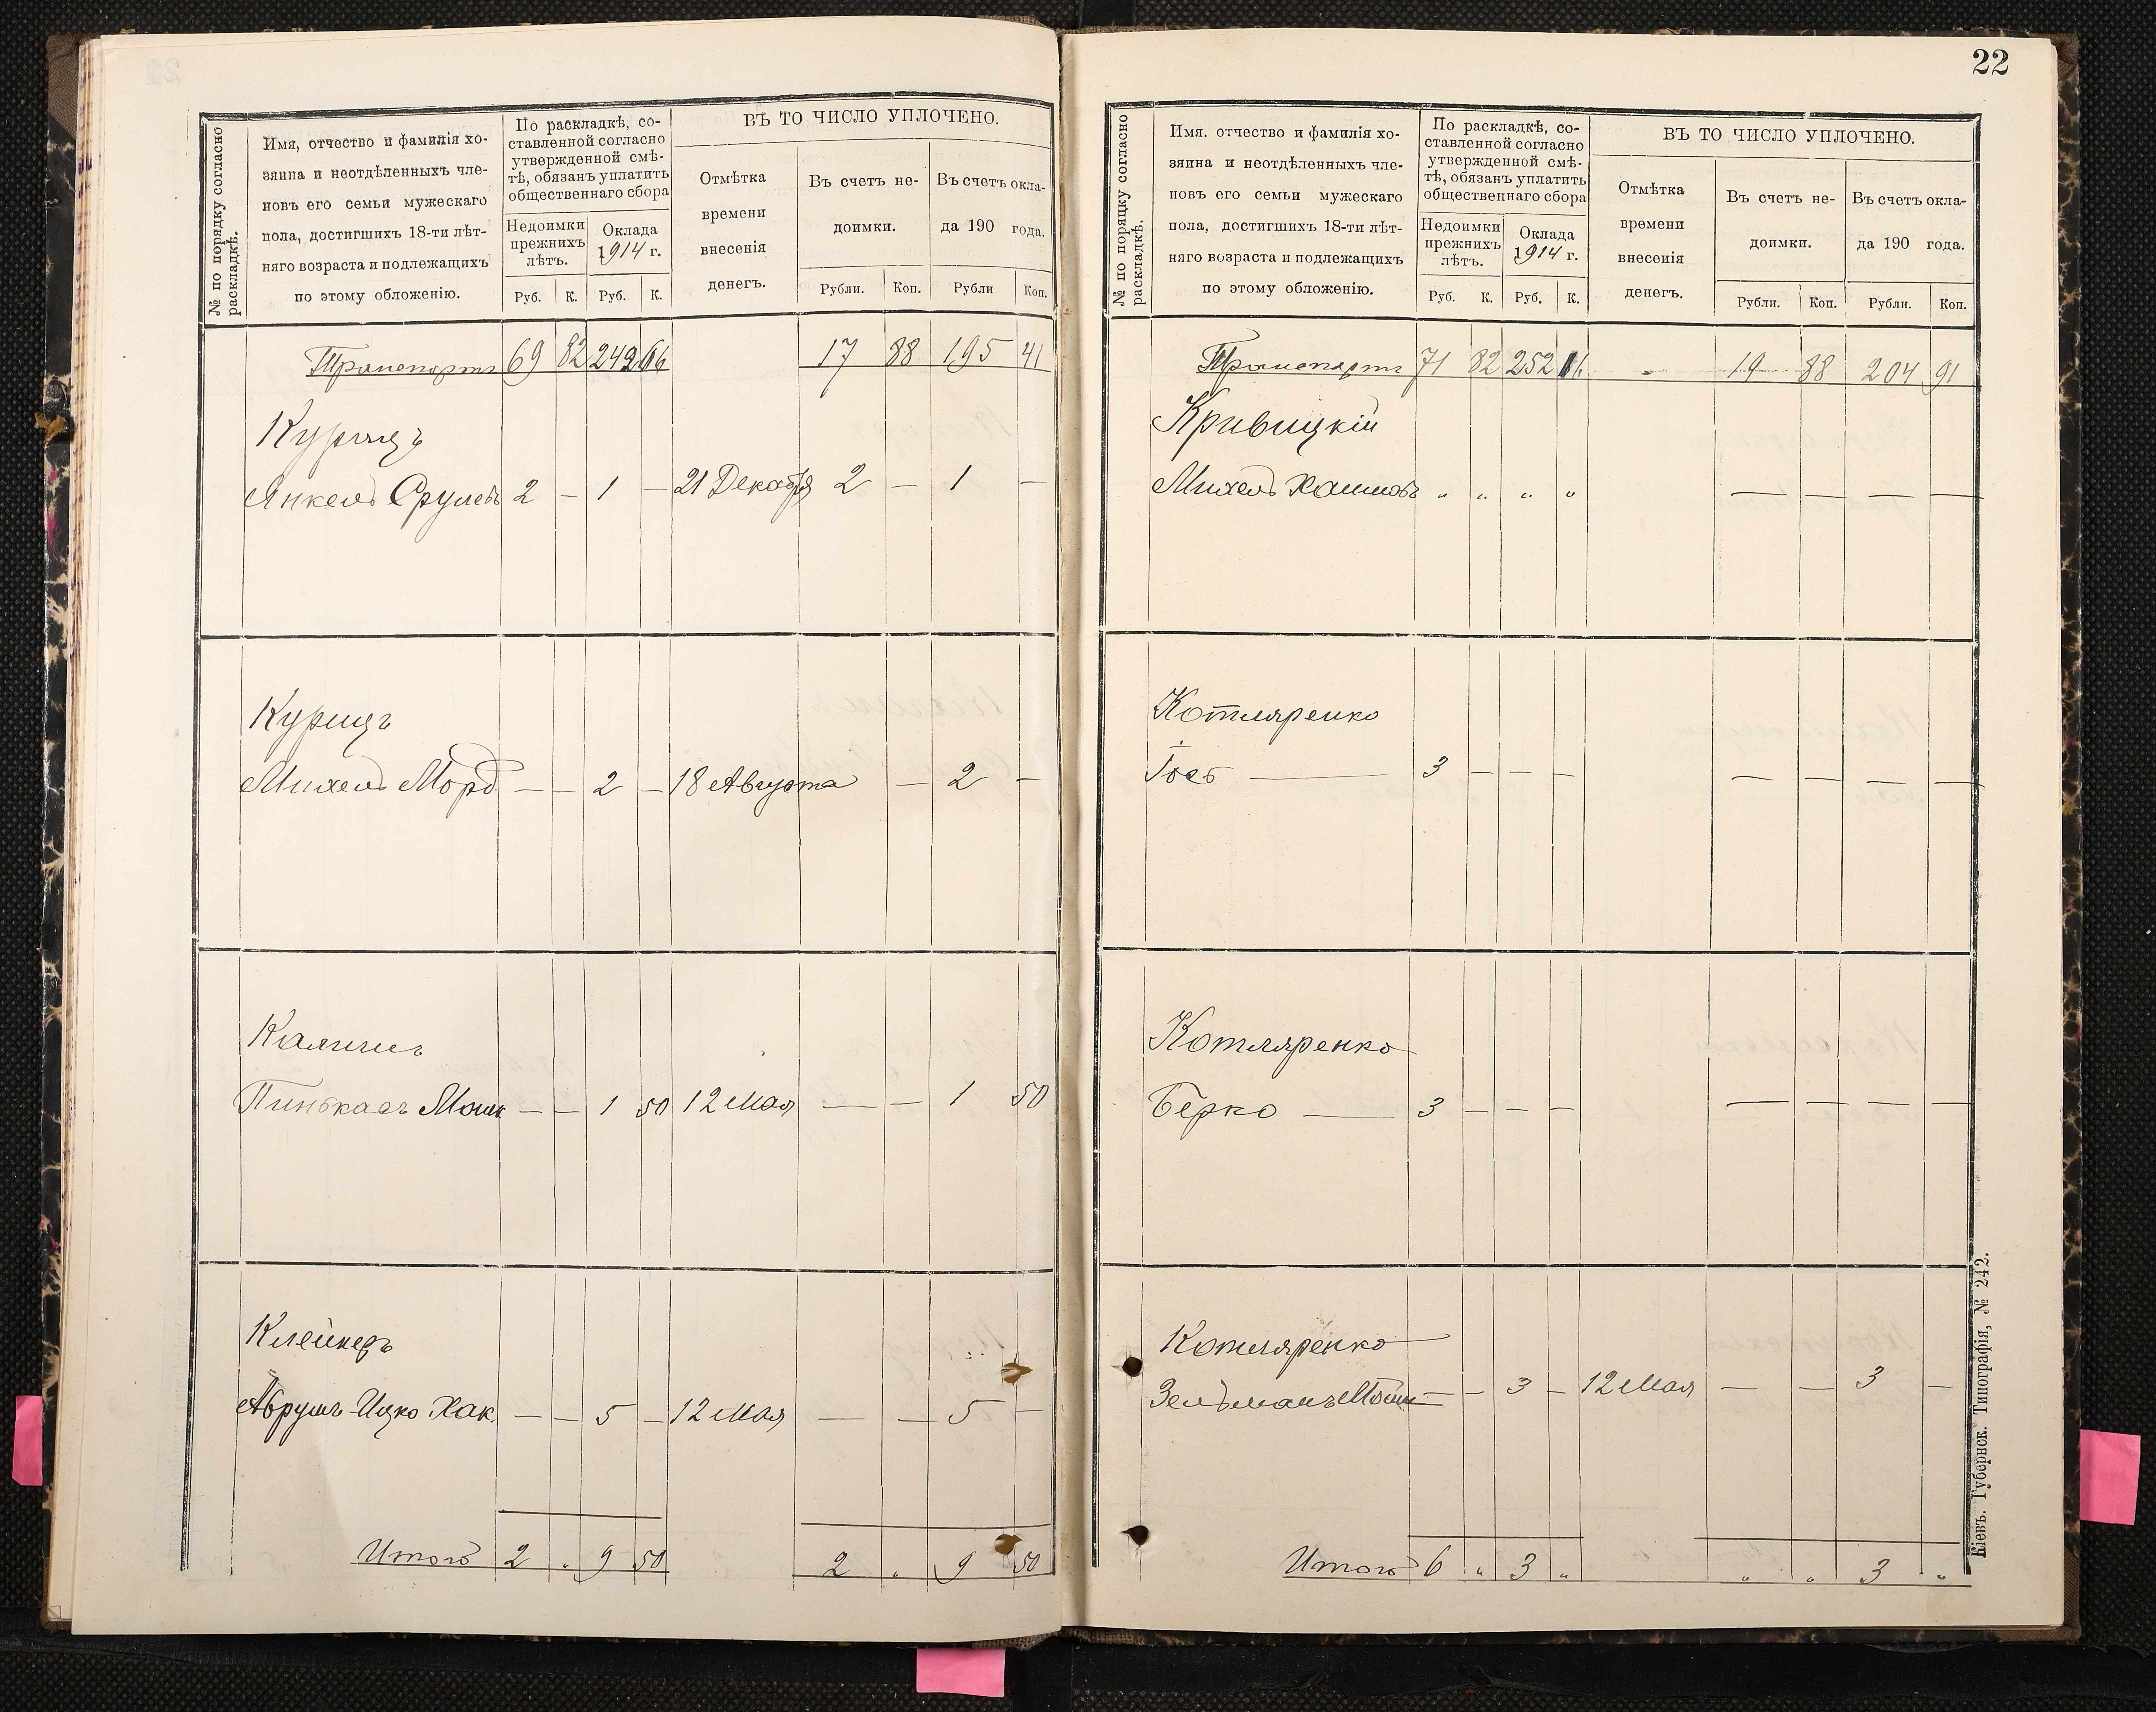 22
№ по порядку согласно
раскладкѣ.
Имя, отчество и фамилія хо-
зяина и неотдѣленныхъ чле-
новъ его семьи мужескаго
пола, достигшихъ 18-ти лѣт-
няго возраста и подлежащихъ
по этому обложенію.
По раскладкѣ, со-
ставленной согласно
утвержденной смѣ-
тѣ, обязанъ уплатить
общественнаго сбора
Недоимки
прежнихъ
лѣтъ.
Оклада
1914 г.
Руб. К. Руб. К.
ВЪ ТО ЧИСЛО УПЛОЧЕНО.
Отмѣтка
времени
внесенія
денегъ.
Въ счетъ не-
доимки.
Въ счетъ окла-
да 190 года.
Рубли. Коп. Рубли Коп.
Транспортъ 69 82 242 66 17 88 195 41
Курицъ
Янкель Срулевъ 2 — 1 — 21 Декабря 2 — 1 —
Курицъ
Михель Морд — — 2 — 18 Августа — 2 —
Пинькасъ Мошк — — 1 50 12 Мая — — 1 50
Клейнеръ
Аврумъ-Ицко Хак. — — 5 — 12 Мая — — 5 —
Итого 2 „ 9 50 2 „ 9 50
№ по порядку согласно
раскладкѣ.
Имя. отчество и фамилія хо-
зяина и неотдѣленныхъ чле-
новъ его семьи мужескаго
пола, достигшихъ 18-ти лѣт-
няго возраста и подлежащихъ
по этому обложенію.
По раскладкѣ, со-
ставленной согласно
утвержденной смѣ-
тѣ, обязанъ уплатить
общественнаго сбора
Недоимки
прежнихъ
лѣтъ.
Оклада
1914 г.
Руб. К. Руб. К.
ВЪ ТО ЧИСЛО УПЛОЧЕНО.
Отмѣтка
времени
внесенія
денегъ.
Въ счетъ не-
доимки.
Въ счетъ окла-
да 190 года.
Рубли. Коп. Рубли. Коп.
Транспортъ 71 82 252 16 19 88 204 91
Кривицкій
Михель Хаимовъ „ „ „ „ — — — —
Котляренко
Іось — 3 — — — — — — —
Котляренко
Берко — 3 — — — — — — —
Котляренко
Зельманъ Мошк — — 3 — 12 Мая — — 3 —
Итого 6 „ 3 „ „ „ 3 „
Кіевъ. Губернск. Типографія, № 242.